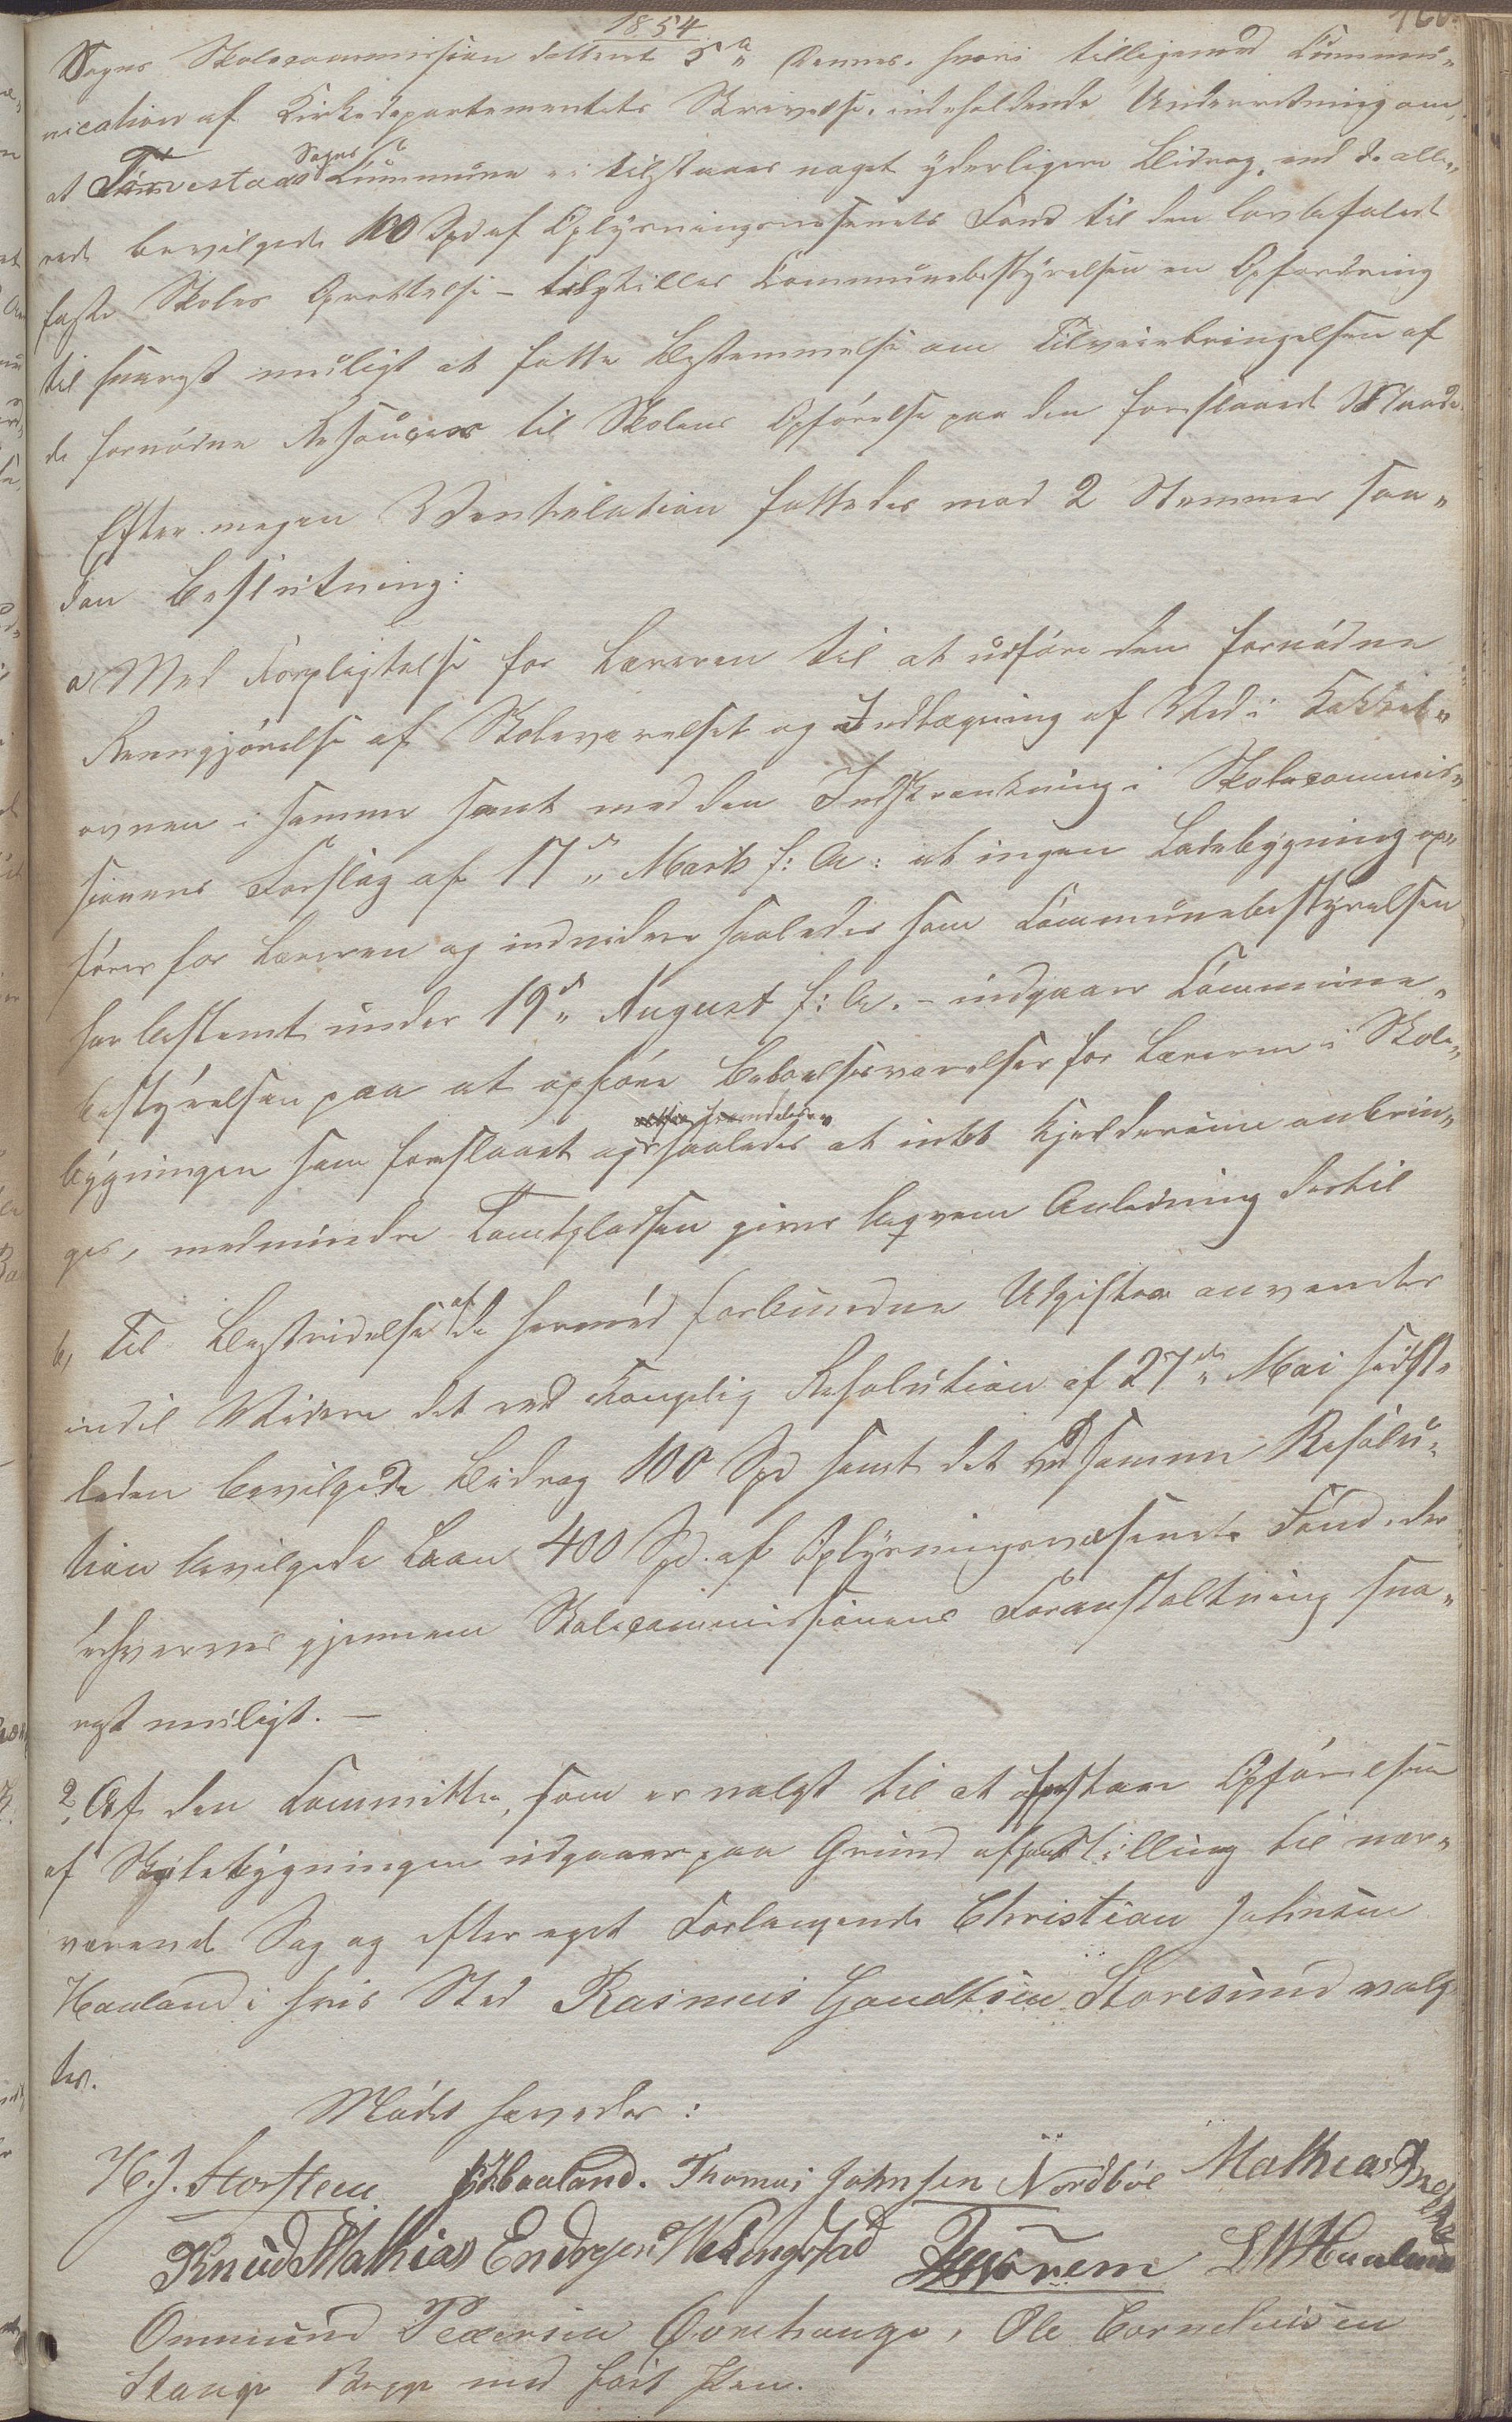 1854
166.
Sogns Skolecommission dateret 5te dennes, hvori tilligemed Commu„
nication af Kirkedepartementets Skrivelse, indeholdende Underretning om,
at Torvestads Sogns Commune ei tilstaaes noget yderligere Bidrag, end de alle„
rede bevilgede 100 Spd af Oplysningsvæsenets Fond til den lovbefalede
faste Skoles Oprettelse – tilstilles Communebestyrelsen en Opfordring
til snarest muligt at fatte Bestemmelse om Tilveiebringelsen af
de fornødne Resourcer til Skolens Opførelse paa den foreslaaede Maade.
Efter megen Ventilation fattedes med 2 Stemmer saa„
dan Beslutning:
a, Med Forpligtelse for Læreren til at udføre den fornødne
Reengjørelse af Skoleværelset og Indlægning af Ved i Kakkel„
ovnen i samme samt med den Indskrænkning i Skolecommis„
sionens Forslag af 17de Marts f: A: at ingen Ladebygning op„
føres for Læreren og endvidere saaledes som Communebestyrelsen
har bestemt under 19de August f: A. – indgaaer Commune„
bestyrelsen paa at opføre Beboelsesværelser for Læreren i Skole„
bygningen som foreslaaet og saaledes at intet Kjelderrum anbrin„
ges, medmindre Tomtpladsen giver beqvem Anledning dertil
b, Til Bestridelse af de hermed forbundne Udgifter anvendes
indtil Videre det ved Kongelig Resolution af 27de Mai sidst„
leden bevilgede Bidrag 100 Spd samt det ved samme Resolu„
tion bevilgede Laan 400 Spd. af Oplysningsvæsenets Fond, der
erhverves gjennem Skolecommissionens Foranstaltning sna„
rest muligt. –
2, Af den Committee, som er valgt til at forestaae Opførelsen
af Skolebygningen udgaaer paa Grund af Stilling til nær„
værende Sag og efter eget Forlangende Christian Johnsen
Haaland i hvis Sted Rasmus Gaudtsen Storesund valg
tes.
Mødet hævedes:
H. J. Storsteen Haaland. Thomas Johnsen Nordbøe Mathias
Knud Mathias Endresen Visingstad L M Haaland
Ommund Pedersen Qvrehauge, Ole Corneliusen
Stange Begge med ført Pen.